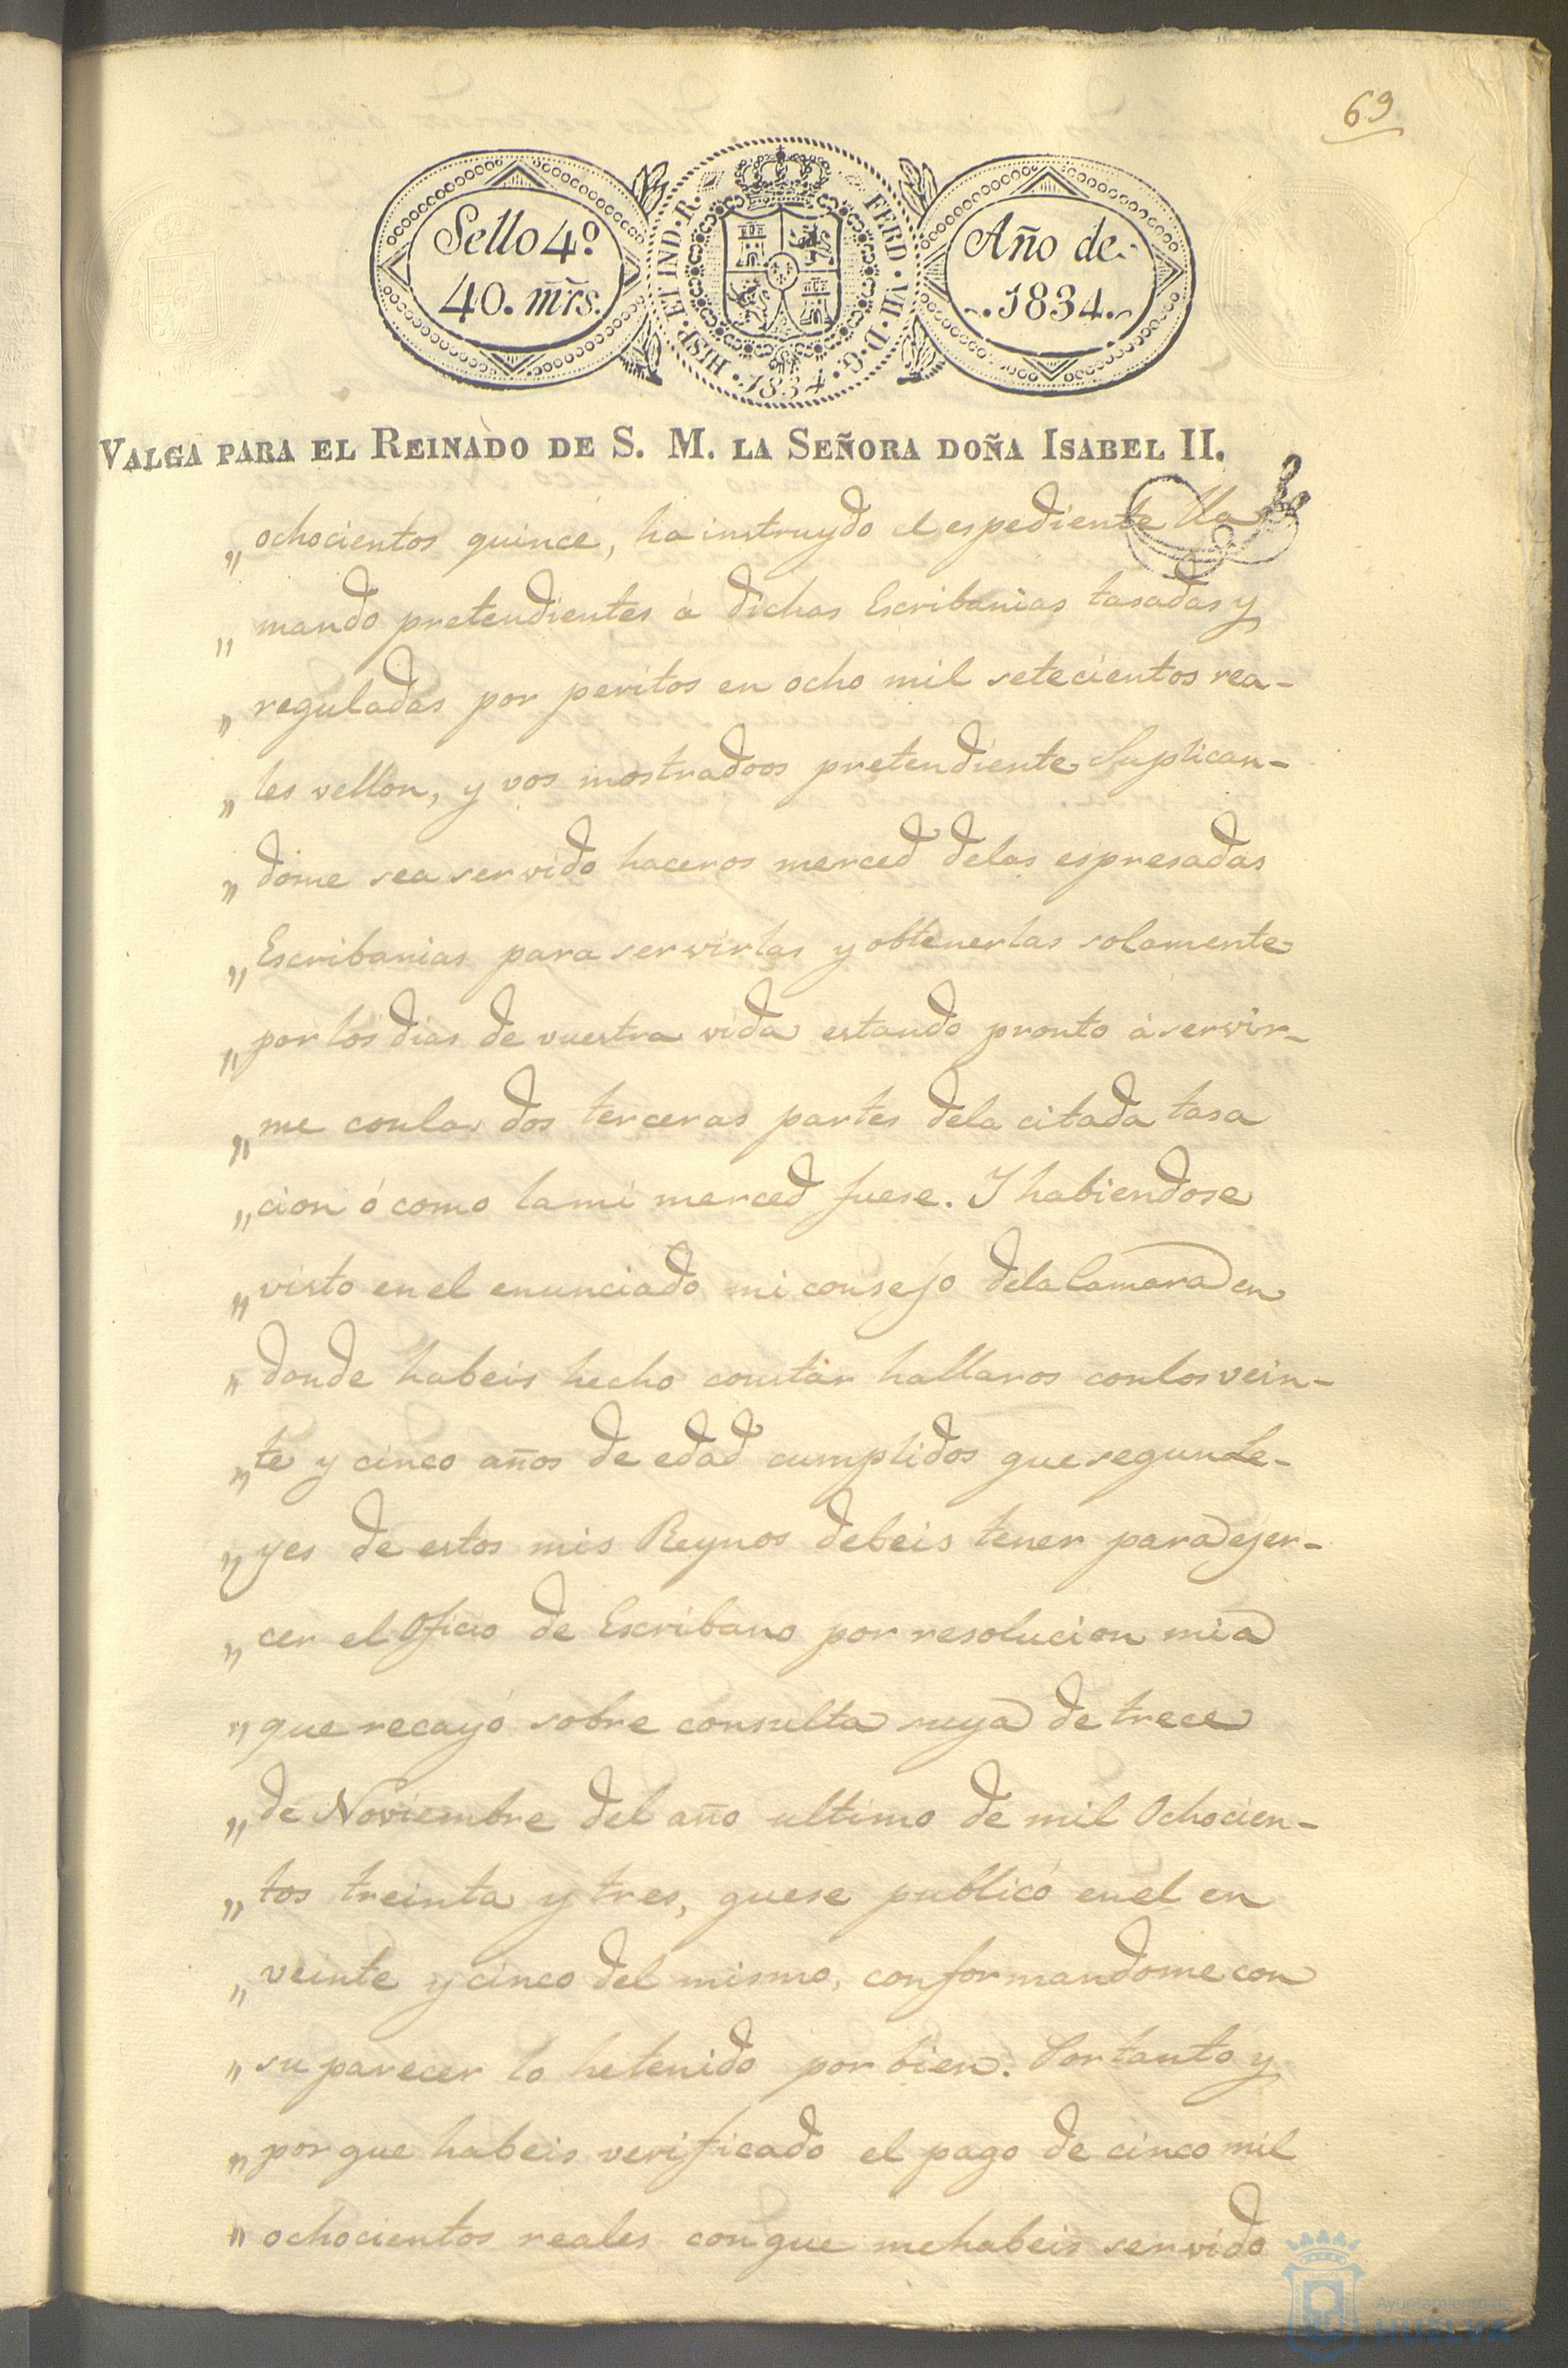 69
Sello 4º
40. mrs.
HISP. ET IND. R. FERD. VII. D. G. 1834.
Año de
1834.
VALGA PARA EL REINADO DE S. M. LA SEÑORA DOÑA ISABEL II.
„ ochocientos quince, ha instruydo el espediente lla
„ mando pretendientes á dichas Escribanias tasadas y
„ reguladas por peritos en ocho mil setecientos rea-
„ les vellon, y vos mostradoos pretendiente Suplican-
„ dome sea servido haceros merced delas espresadas
„ Escribanias para servirlas y obtenerlas solamente
„ por los dias de vuestra vida estando pronto á servir-
„ me conlas dos terceras partes dela citada tasa
„ cion ó como lami merced fuese. Y habiendose
„ visto en el enunciado mi consejo dela Camara en
„ donde habeis hecho constar hallaros conlos vein-
„ te y cinco años de edad cumplidos que segun Le-
„ yes de estos mis Reynos debeis tener para ejer-
„ cer el Oficio de Escribano por resolucion mia
„ que recayó sobre consulta suya de trece
„ de Noviembre del año ultimo de mil Ochocien-
„ tos treinta y tres, quese publicó enel en
„ veinte y cinco del mismo, conformandome con
„ su parecer lo hetenido por bien. Por tanto y
„ por que habeis verificado el pago de cinco mil
„ ochocientos reales conque mehabeis servido
Ayuntamiento de
HUELVA